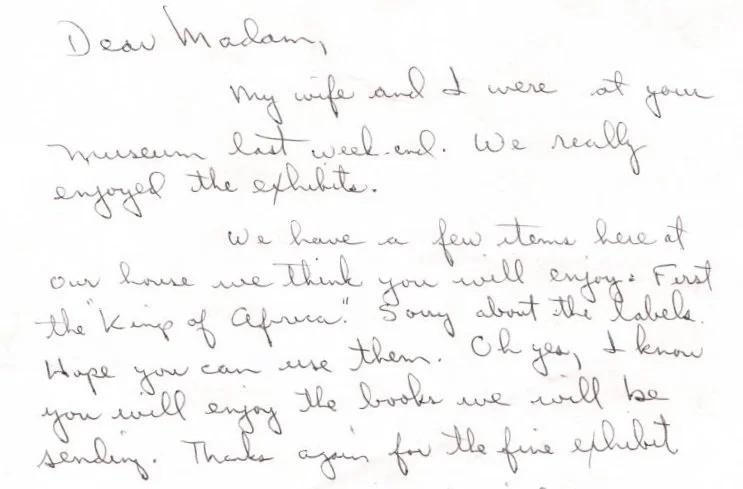 Dear Madam,
My wife and I were at your
museum last week-end. We really
enjoyed the exhibits.
We have a few items here at
our house we think you will enjoy: First
the "King of Africa". Sorry about the labels.
Hope you can use them. Oh yes, I know
you will enjoy the books we will be
sending. Thanks again for the fine exhibit